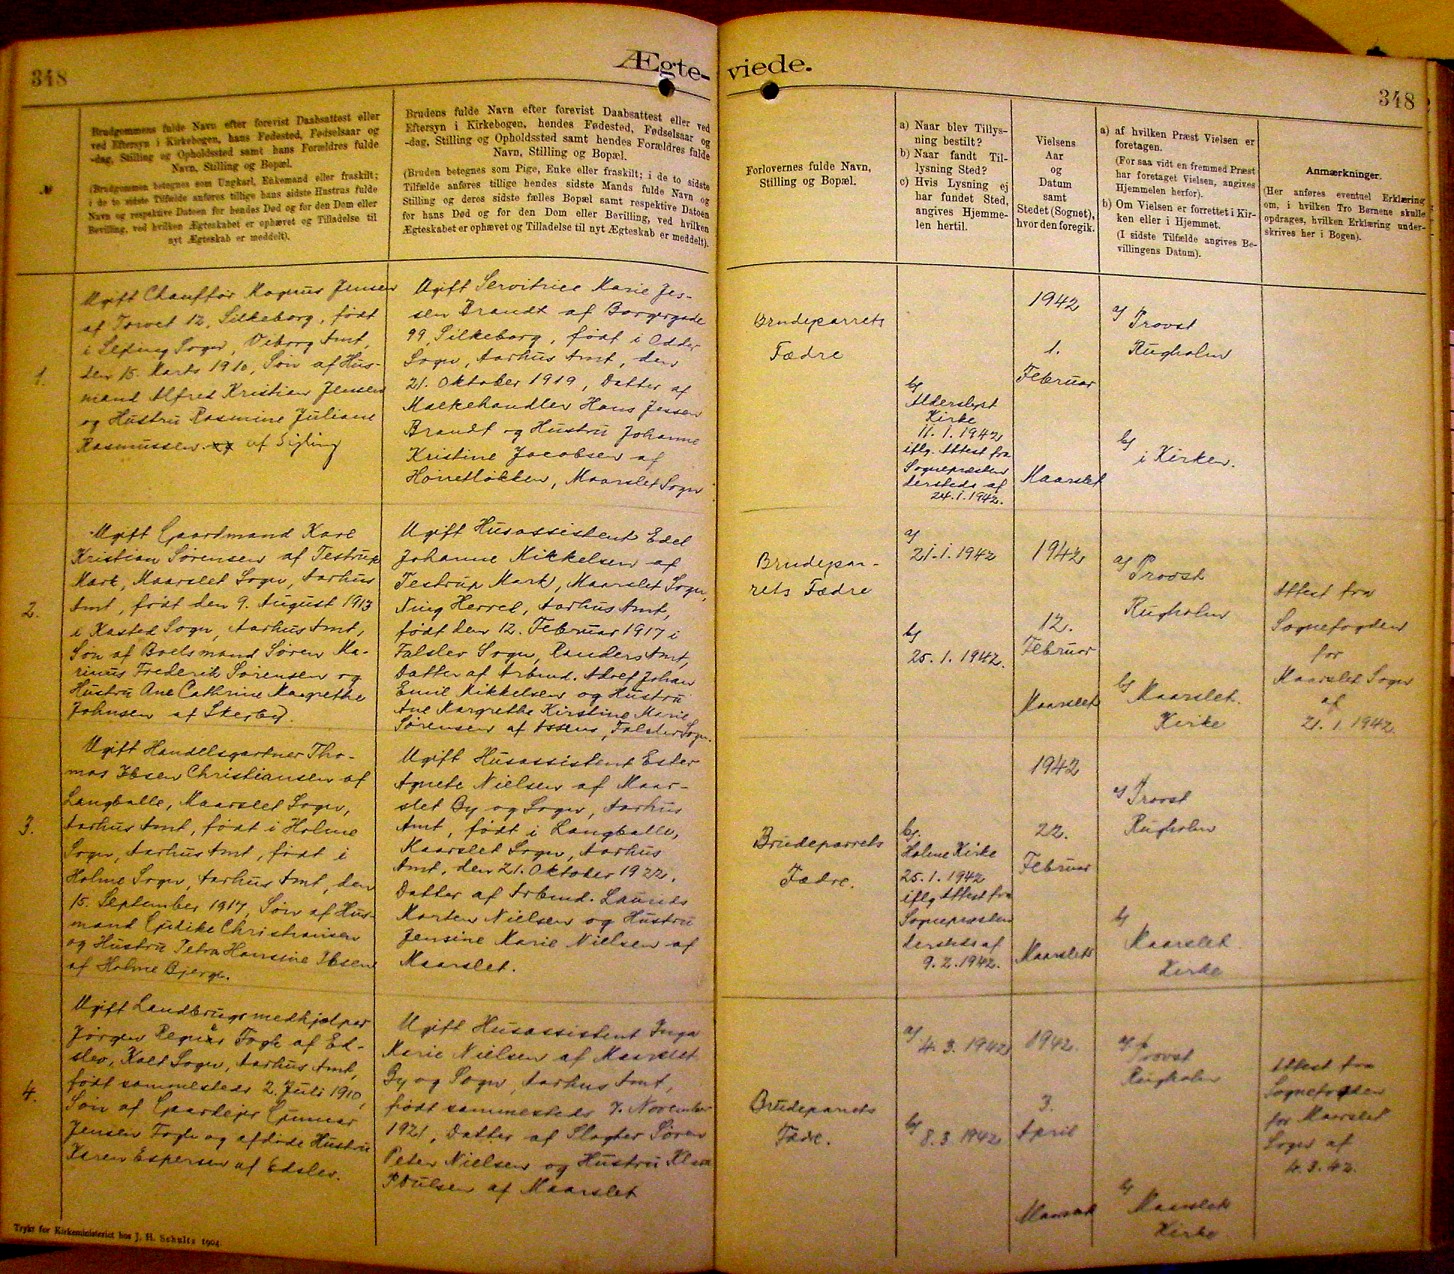 348
Ægte-
viede.
348
№
Brudgommens fulde Navn efter forevist Daabsattest eller
ved Eftersyn i Kirkebogen, hans Fødested, Fødselsaar og
-dag, Stilling og Opholdssted samt hans Forældres fulde
Navn, Stilling og Bopæl.
(Brudgommen betegnes som Ungkarl, Enkemand eller fraskilt;
i de to sidste Tilfælde anføres tillige hans sidste Hustrus fulde
Navn og respektive Datoen for hendes Død og for den Dom eller
Bevilling, ved hvilken Ægteskabet er ophævet og Tilladelse til
nyt Ægteskab er meddelt).
Brudens fulde Navn efter forevist Daabsattest eller ved
Eftersyn i Kirkebogen, hendes Fødested, Fødselsaar og
-dag, Stilling og Opholdssted samt hendes Forældres fulde
Navn, Stilling og Bopæl.
(Bruden betegnes som Pige, Enke eller fraskilt; i de to sidste
Tilfælde anføres tillige hendes sidste Mands fulde Navn og
Stilling og deres sidste fælles Bopæl samt respektive Datoen
for hans Død og for den Dom eller Bevilling, ved hvilken
Ægteskabet er ophævet og Tilladelse til nyt Ægteskab er meddelt).
Forlovernes fulde Navn,
Stilling og Bopæl.
a) Naar blev Tillys-
ning bestilt?
b) Naar fandt Til-
lysning Sted?
c) Hvis Lysning ej
har fundet Sted,
angives Hjemme-
len hertil.
Vielsens
Aar
og
Datum
samt
Stedet (Sognet),
hvor den foregik.
a) af hvilken Præst Vielsen er
foretagen.
(For saa vidt en fremmed Præst
har foretaget Vielsen, angives
Hjemmelen herfor).
b) Om Vielsen er forrettet i Kir-
ken eller i Hjemmet.
(I sidste Tilfælde angives Be-
villingens Datum).
Anmærkninger.
(Her anføres eventuel Erklæring
om, i hvilken Tro Børnene skulle
opdrages, hvilken Erklæring under-
skrives her i Bogen).
1.
Ugift Chauffør Magnus Jensen
af Torvet 12, Silkeborg, født
i Lefing Sogn, Viborg Amt,
den 15. Marts 1910, Søn af Hus-
mand Alfred Kristian Jensen
og Hustru Rasmine Juliane
Rasmussen af
Ugift Servitrice Marie Jes-
sen Brandt af Borgergade
99, Silkeborg, født i Odder
Sogn, Aarhus Amt, den
21. Oktober 1919, Datter af
Mælkehandler Hans Jessen
Brandt og Hustru Johanne
Kristine Jacobsen af
Hørretløkken, Maarslet Sogn
Brudeparrets
Fædre
b)
Alderslyst
Kirke
11.1.1942
iflg. Attest fra
Sognepræsten
dersteds af
24.1.1942.
1942
1.
Februar
Maarslet
a) Provst
Rugholm
b)
i Kirken.
2.
Ugift Gaardmand Kare
Kristian Sørensen af Testrup
Mark, Maarslet Sogn, Aarhus
Amt, født den 9. August 1913
i Kasted Sogn, Aarhus Amt,
Søn af Boelsmand Søren Ma-
rinus Frederik Sørensen og
Hustru Ane Cathrine Margrethe
Johnsen af Skejby.
Ugift Husassistent Edel
Johanne Mikkelsen af
Testrup Mark, Maarslet Sogn,
Ning Herred, Aarhus Amt,
født den 12. Februar 1917 i
Falslev Sogn, Randers Amt,
Datter af Arbmd. Adolf Johan
Emil Mikkelsen og Hustru
Ane Margrethe Kirstine Marie
Sørensen af Assens, Falslev Sogn.
Brudepar-
rets Fædre
a)
21.1.1942
b)
25.1.1942.
1942
12.
Februar
Maarslet
a) Provst
Rugholm
b) Maarslet
Kirke
Attest fra
Sognefogden
for
Maarslet Sogn
af
21.1.1942.
3.
Ugift Handelsgartner Tho-
mas Ibsen Christiansen af
Langballe, Maarslet Sogn,
Aarhus Amt, født i Holme
Sogn, Aarhus Amt, født i
Holme Sogn, Aarhus Amt, den
15. September 1917, Søn af Hus-
mand Christiansen
og Hustru Petra Hansine Ibsen
af Holme Bjerge.
Ugift Husassistent Ester
Agnete Nielsen af Maar-
slet By og Sogn, Aarhus
Amt, født i Langballe,
Maarslet Sogn, Aarhus
Amt, den 21. Oktober 1922,
Datter af Arbmd. Laurids
Morten Nielsen og Hustru
Jensine Marie Nielsen af
Maarslet.
Brudeparrets
Fædre.
b)
Holme Kirke
25.1.1942
iflg Attest fra
Sognepræsten
dersteds af
9.2.1942.
1942
22.
Februar
Maarslet
a) Provst
Rugholm
b)
Maarslet
Kirke
4.
Ugift Landbrugsmedhjælper
Jørgen Regnar Fogh af Ed-
slev, Kolt Sogn, Aarhus Amt,
født sammesteds 2. Juli 1910,
Søn af Gaardejer Gunnar
Jensen Fogh og afdøde Hustru
Karen Espersen af Edslev.
Ugift Husassistent Inga
Marie Nielsen af Maarslet
By og Sogn, Aarhus Amt,
født sammesteds 7. November
1921, Datter af Slagter Søren
Peter Nielsen og Hustru
Poulsen af Maarslet
Brudeparrets
Fædre.
a)
4.3.1942
b) 8.3.1942
1942.
3.
April
Maarslet
a) Provst
Rugholm
b) Maarslet
Kirke
Attest fra
Sognefogden
for Maarslet
Sogn af
4.3.42.
Trykt for Kirkeministeriet hos J. H. Schultz 1904.